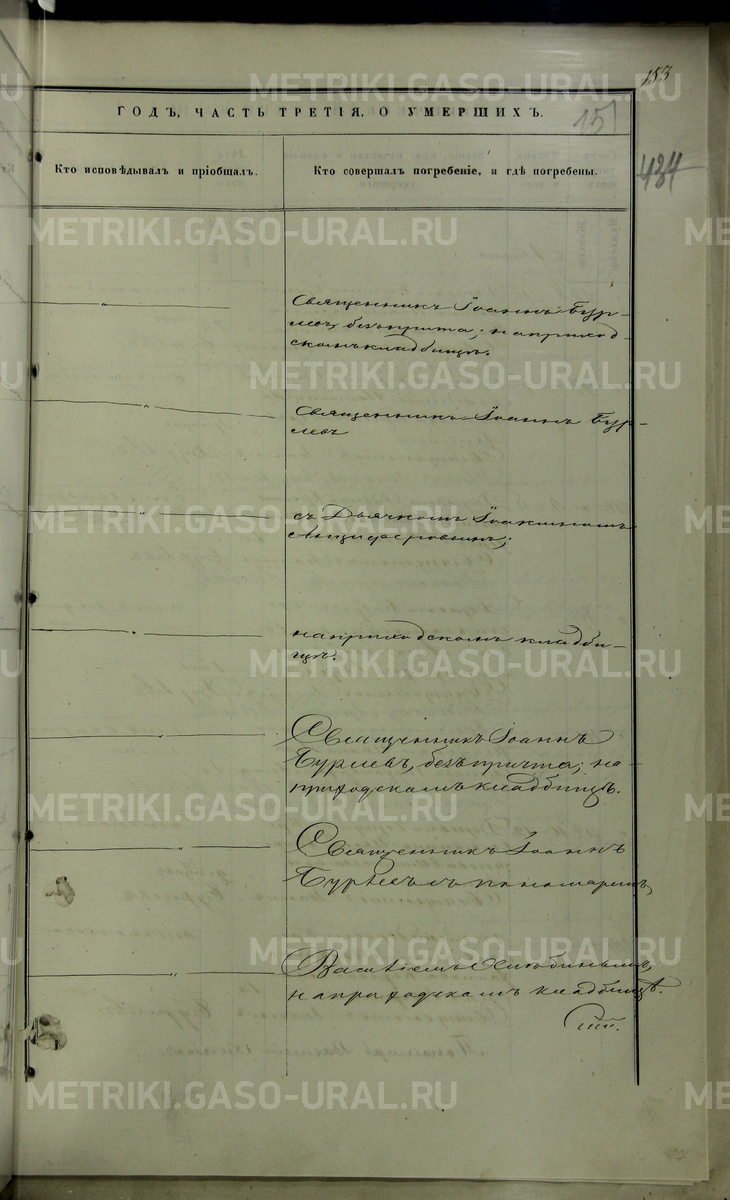 153
ГОДЪ, ЧАСТЬ ТРЕТІЯ, О УМЕРШИХЪ.
151
434
Кто исповѣдывалъ и пріобщалъ.
Кто совершалъ погребеніе, и гдѣ погребены.
Священникъ Іоаннъ Бур-
левъ, безъ причта; на приход-
скомъ кладбищѣ.
Священникъ Іоаннъ Бур-
левъ
съ Дьячкомъ Іоакимомъ
Анциферовымъ;
на приходскомъ кладби-
щѣ.
Священникъ Іоаннъ
Бурлевъ, безъ причта; на
приходскомъ кладбищѣ.
Священникъ Іоаннъ
Бурлевъ съ пономаремъ
Василіемъ
на приходскомъ кладбищѣ.
METRIKI.GASO-URAL.RU